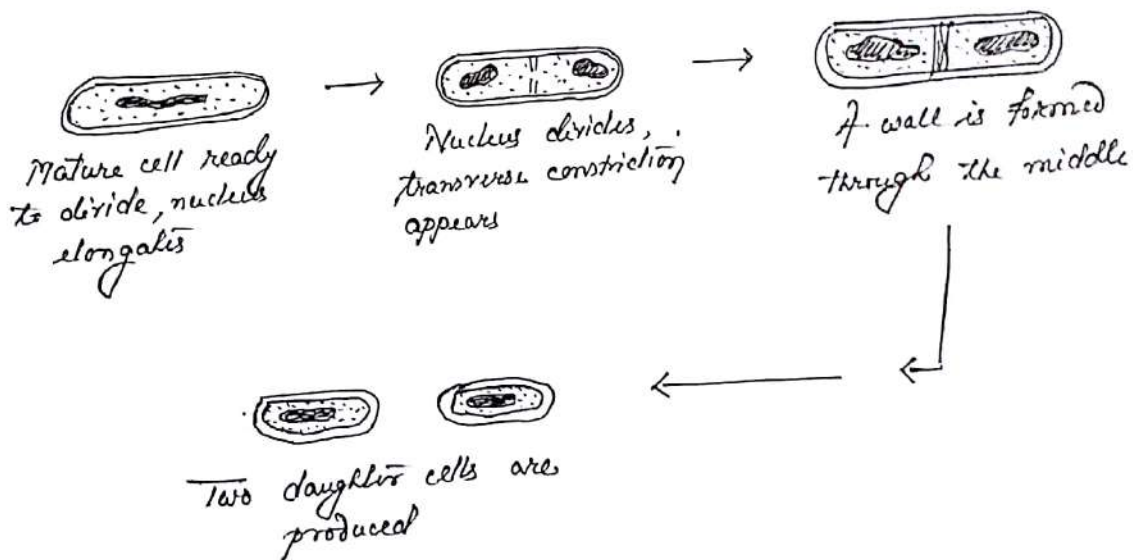 Mature cell ready
to divide, nucleus
elongates
Nucleus divides,
transverse constriction
appears
A wall is formed
through the middle
Two daughter cells are
produced